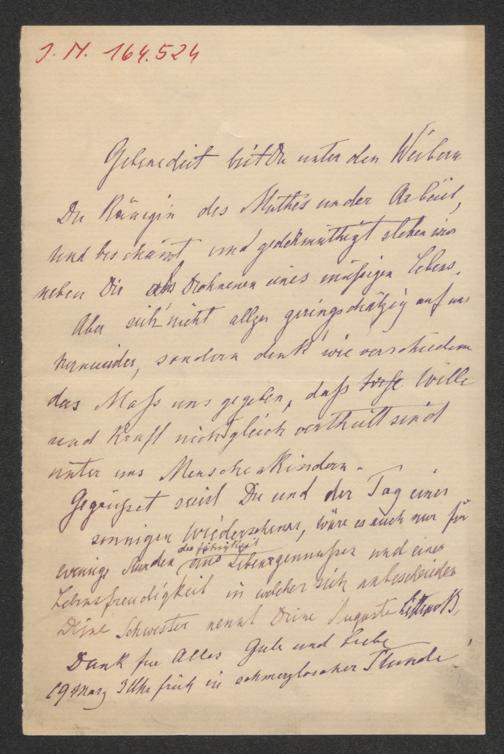 J. N. 164.524
Gebenedeit bist Du unter den Weibern
Du Königin des Muthes und der Arbeit,
und beschämt, und gedehmüthigt stehen wir
neben Dir als Drohnenen eines müßigen Lebens.
Aber sieh' nicht allzu geringschätzig auf uns
hernieder, sondern denk' wie verschieden
das Maß uns gegeben, daß Wille
und Kraft nicht gleich vertheilt sind
unter uns Menschenkindern.
Gegrüsset seist Du und der Tag eines
sonnigen Wiedersehens, wäre es auch nur für
wenige Stunden
der Fähigkeit
und einer
Lebensfreudigkeit in welcher sich unbescheiden
Deine Schwester nennt Deine Auguste
Dank für Alles Gute und Liebe
19 März 3 Uhr früh in schmerzloser Stunde!